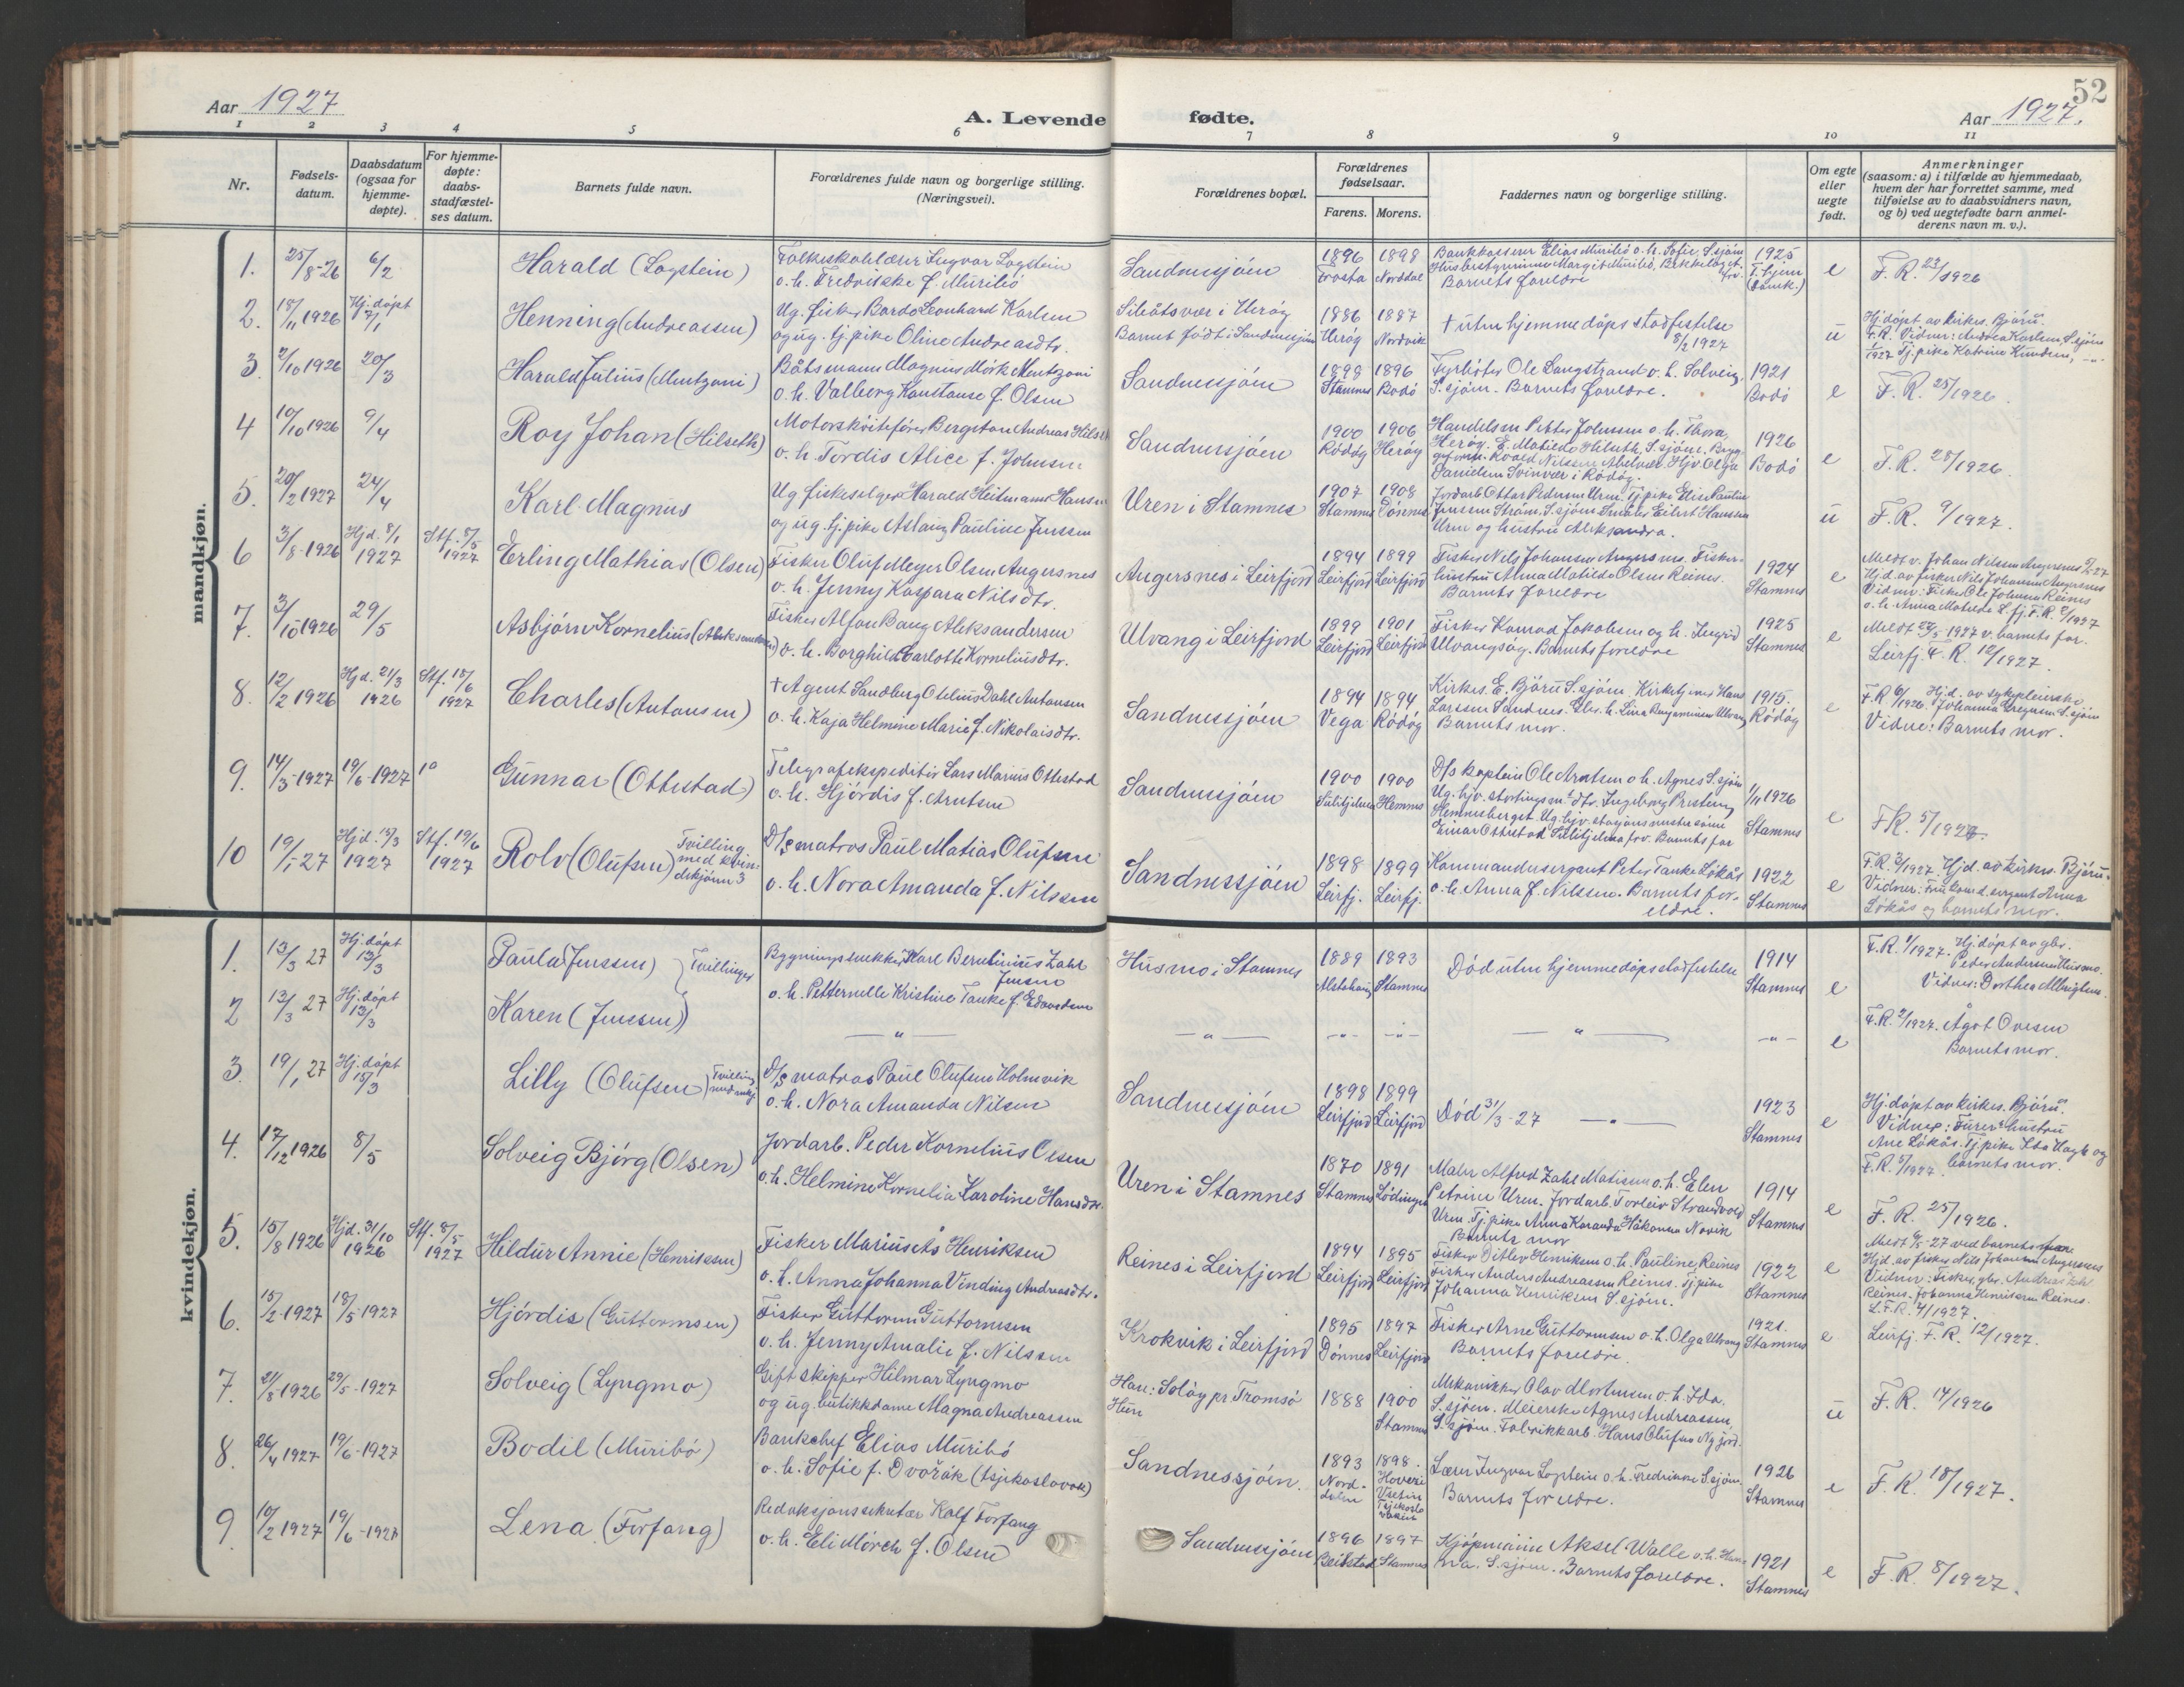 52
Aar 1927
A. Levende fødte.
Aar 1927.
1 2 3 4 5 6 7 8 9 10 11
Nr.
Fødsels-datum.
Daabsdatum (ogsaa for hjemme-døpte).
For hjemme-døpte: daabs-stadfæstel-ses datum.
Barnets fulde navn.
Forældrenes fulde navn og borgerlige stilling. (Næringsvei).
Forældrenes bopæl.
Forældrenes fødselsaar.
Farens. Morens.
Faddernes navn og borgerlige stilling.
Om egte eller uegte født.
Anmerkninger
(saasom: a) i tilfælde av hjemmedaab,
hvem der har forrettet samme, med
tilføielse av to daabsvidners navn,
og b) ved uegtefødte barn anmel-
derens navn m. v.).
mandkjøn.
1. 25/8-26 6/2 Harald (Logstein) Folkeskolelærer Ingvar Logstein
o. h. Fredrikke f. Müribö
Sandnessjöen 1896 Frosta 1898 Norddal
Bankkasserer Elias Müribö o. h. Sofie S.sjöen
Barnets foreldre
1925
e F. R. 23/1926
2. 18/11 1926 Hj. döpt 7/1 Henning (Andreassen) Ug. fisker Bardo Leonhard Karlsen
og ug. tj.pike Oline Andreasdtr.
i Heröy
Barnet födt i Sandnessjöen 1886 Heröy 1887 Nordvik
† uten hjemmedåps stadfestelse
8/2 1927
u Hj. döpt av kirkes. Björu.
F.R. Vidner: Andrea Karlsen, S.sjöen
1/1927 Tj. pike Katrine Knudsen, -"-
3. 2/10 1926 20/3 Harald Julius (Mentzoni) Båtsmann Magnus Mörk Mentzoni
o. h. Valborg Konstanse f. Olsen
Sandnessjöen 1898 Stamnes 1896 Bodö
Fyrböter Ole Langstrand o. h. Solveig,
S.sjöen. Barnets foreldre.
1921 Bodö e F. R. 25/1926.
4 19/10 1926 9/4 Roy Johan (Hilseth) Motorsköitefører Bergston Andreas Hilseth
o. h. Tordis Alice f. Johnsen
Sandnessjöen 1900 Rödöy 1906 Heröy
Handelsm. Petter Johnsen o. h. Thora,
Heröy. E. Matilde Hilseth, S.sjöen. Brygg-
Danielsen Svinvær i Rödöy.
1926 Bodö e F. R. 28/1926.
5. 20/2 1927 24/4 Karl Magnus Ug. fiskeselger Harald Heitmann Hansen
og ug. tj. pike Aslaug Pauline Jenssen
Uren i Stamnes 1907 Stamnes 1908 Dönnes
Jordarb. Ottar Pedersen Uren. Tj. pike Elise Pauline
Jenssen Strøm, S.sjöen Eilert Hanssen
Uren og hustru Aleksandra.
u F. R. 9/1927.
6 3/8-1926 Hjd. 8/1 1927 Stf. 8/5 1927 Erling Mathias (Olsen) Fisker Oluf Meyer Olsen Angersnes
o. h. Jenny Kaspara Nilsdtr.
Angersnes i Leirfjord 1894 Leirfjord 1899 Leirfjord
Fisker Nils Johansen Angersnes. Fisker-
hustru Anna Matilde Olsen Reines.
Barnets foreldre
1924 Stamnes e Meldt v. Johan Nilsen Angersnes
Hjd. av fisker Nils Johansen Angersnes
Vidner: Fisker Ole Johansen Reines
o. h. Anna Matilde L.fj. F.R. 2/1927
7. 3/10 1926 29/5 Asbjörn Kornelius (Aleksandersen) Fisker Alfon Bang Aleksandersen
o. h. Borghild Carlotte Korneliusdtr.
Ulvang i Leirfjord 1899 Leirfjord 1901 Leirfjord
Fisker Konrad Jakobsen og h. Ingrid
Ulvangsöy. Barnets foreldre
1925 Stamnes e Meldt 24/5 1927 v. barnets far.
Leirfj. F. R. 12/1927.
8. 12/2 1926 Hjd. 21/3 1926 Stf. 18/6 1927 Charles (Antonsen) † Agent Sandberg Otelius Dahl Antonsen
o. h. Kaja Helmine Marie f. Nikolaisdtr.
Sandnessjöen 1894 Vega 1894 Rödöy
Kirkes. E. Björu S.sjöen. Kirketjener Hans
Larssen Sandnes. h. Lina Benjaminsen Ulvang
Barnets mor.
1915. Rödöy e F.R. 6/1926. Hjd. av sykepleierske
Johanna S.sjöen
Vidne: Barnets mor.
9. 14/3-1927 19/6-1927 Gunnar (Ottestad) Telegrafekspeditör Lars Marius Ottestad
o. h. Hjördis f. Arntsen
Sandnessjöen 1900 Sulitjelma 1900 Hemnes
D/s kaptein Ole Arntsen o. h. Agnes S.sjöen
Ug. hjv. stortingsm.s dtr. Ingeborg
Hemnesberget. Ug. hjv.
Einar Ottestad Sulitjelma frv. Barnets far
1/11 1926 Stamnes e F.R. 5/1927.
10 19/1-27 Hjd. 15/3 1927 Stf. 19/6 1927 Rolv (Olufsen) Tvilling med kvin-dekjönn 3
D/s matros Paul Matias Olufsen
o. h. Nora Amanda f. Nilssen
Sandnessjöen 1898 Leirfj. 1899 Leirfj.
Kommandersergant Peter Tanke Lökås
o. h. Anna f. Nilssen. Barnets for-
eldre.
1922 Stamnes e F.R. 3/1927. Hjd. av kirkes. Björu.
Vidner: Fru kom.d. sergant Anna
Lökås og barnets mor.
kvindekjøn.
1. 13/3 27 Hj. döpt 13/3 Paula (Jenssen) Tvillinger Bygningssnekker Karl Berntinius Zahl
Jensen
o. h. Petternelle Kristine Tanke f. Edvardsen
Husmo i Stamnes 1889 Alstahaug 1893 Stamnes
Död uten hjemmedåps stadfestelse
1914 Stamnes e F.R. 1/1927. Hj. döpt av gbr.
Peder Andersen Husmo.
Vidner: Dorthea Albrigtsen.
2 13/3 27 Hj. döpt 13/3 Karen (Jenssen) -"-
-"- -"- -"- -"- -"- e F.R. 2/1927. Ågot Ovesen
Barnets mor.
3. 19/1 27 Hj. döpt 15/3 Lilly (Olufsen) Tvilling
D/s matros Paul Olufsen Holmvik
o. h. Nora Amanda Nilsen
Sandnessjöen 1898 Leirfjord 1899 Leirfjord
Död 31/3-27 -"-
1923 Stamnes e Hj. döpt av kirkes. Björu.
Vidner: Furers hustru
Ane Lökås. Tj. pike og
F.R. 5/1927. barnets mor.
4. 17/12 1926 8/5 Solveig Björg (Olsen) Jordarb. Peder Kornelius Olsen
o. h. Helmine Kornelia Karoline Hansdtr.
Uren i Stamnes 1870 Stamnes 1891 Lödingen
Maler Alfred Zahl Matisen o. h. Elen
Petrine Uren. Jordarb. Torleiv Strandvold
Uren. Tj. pike Anna Karanda Håkonsen Novik
Barnets mor
1914 Stamnes e F. R. 25/1926.
5. 15/8 1926 Hjd. 31/10 1926 Stf. 8/5 1927 Hildur Annie (Henriksen) Fisker Marius Ås Henriksen
o. h. Anna Johanna Vinding Andreasdtr.
Reines i Leirfjord 1894 Leirfjord 1895 Leirfjord
Fisker Ditlev Henriksen o. h. Pauline Reines
Fisker Anders Andreassen Reines. Tj. pike
Johanna Henriksen S.sjöen.
1922 Stamnes e Meldt 6/5-27 ved barnets
Hjd. av fisker Nils Johansen Angersnes
Vidner: Fisker, gbr. Andreas Zahl
Reines. Johanna Henriksen Reines.
L.F.R. 4/1927.
6. 15/2-1927 18/5-1927 Hjördis (Guttormsen) Fisker Guttorm Guttormsen
o. h. Jenny Amalie f. Nilssen
Krokvik i Leirfjord 1895 Dönnes 1897 Leirfjord
Fisker Arne Guttormsen o. h. Olga Ulvang
Barnets foreldre.
1921. Stamnes e Leirfj. F. R. 12/1927.
7. 21/8 1926 29/5-1927 Solveig (Lyngmo) Gift skipper Hilmar Lyngmo
og ug. butikkdame Magna Andreassen
Han: Solöy pr Tromsö
Hun 1888 1900 Stamnes
Mekaniker Olav Mortensen o. h. Ida.
S.sjöen. Meierske Agnes Andreassen,
S.sjöen. Fabrikkarb. Hans Olufsen Nygjord.
u F. R. 14/1926
8. 26/4 1927 19/6-1927 Bodil (Müribö) Bankchef Elias Müribö
o. h. Sofie f. Dvořák (tsjekoslovak)
Sandnessjöen. 1893 Nord-dalen 1898.
Lærer Ingvar Logstein o. h. Fredrikke S.sjöen.
Barnets foreldre.
1926 Stamnes e F. R. 18/1927.
9. 10/2 1927 19/6-1927 Lena (Forfang) Redaksjonssekretær Rolf Forfang
o. h. Eli Mörch f. Olsen
Sandnessjöen 1896 Beitstad 1897 Stamnes
Kjöpmann Aksel Walle o. h. Han-
na. S.sjöen. Barnets foreldre.
1921 Stamnes e F. R. 8/1927.